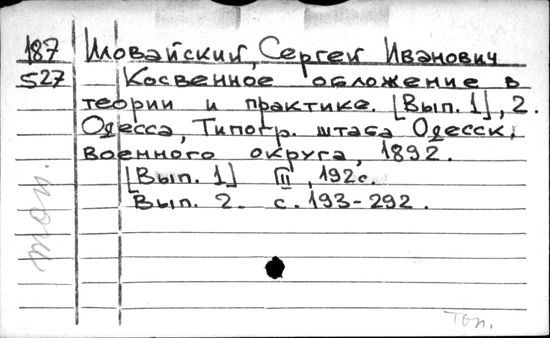 187
527
Иловайский, Сергей Иванович
Косвенное обложение в
теории и практике. [Вып. 1], 2.
Одесса, Типогр. штаба Одесск.
военного округа, 1892.
[Вып. 1] III, 192с.
Вып. 2. с. 193-292.
топ.
Топ.